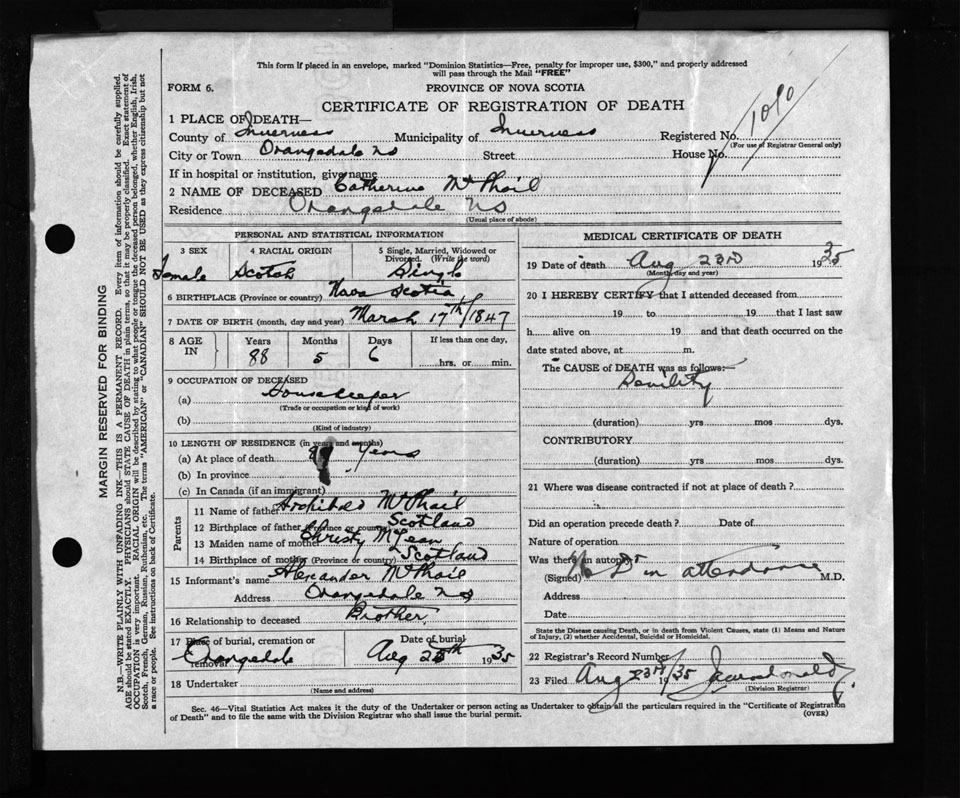 This form if placed in an envelope, marked "Dominion Statistics—Free, penalty for improper use, $300," and properly addressed
will pass through the Mail "FREE"
FORM 6. PROVINCE OF NOVA SCOTIA
CERTIFICATE OF REGISTRATION OF DEATH
1 PLACE OF DEATH—
County of Inverness Municipality of Inverness Registered No. 1090
(For use of Registrar General only)
City or Town Orangedale NS Street House No.
If in hospital or institution, give name
2 NAME OF DECEASED Catherine McPhail
Residence Orangedale NS
(Usual place of abode)
PERSONAL AND STATISTICAL INFORMATION
3 SEX 4 RACIAL ORIGIN 5 Single, Married, Widowed or Divorced. (Write the word)
Female Scotch Single
6 BIRTHPLACE (Province or country) Nova Scotia
7 DATE OF BIRTH (month, day and year) March 17th/1847
8 AGE IN Years Months Days If less than one day,
88 5 6 hrs. or min.
9 OCCUPATION OF DECEASED
(a) Housekeeper
(Trade or occupation or kind of work)
(b)
(Kind of industry)
10 LENGTH OF RESIDENCE (in years and months)
(a) At place of death years
(b) In province
(c) In Canada (if an immigrant)
Parents
11 Name of father Archibald McPhail
12 Birthplace of father (Province or country) Scotland
13 Maiden name of mother Christy McLean
14 Birthplace of mother (Province or country) Scotland
15 Informant's name Alexander McPhail
Address Orangedale NS
16 Relationship to deceased Brother
17 Place of burial, cremation or removal Date of burial
Orangedale Aug 25th 1935
18 Undertaker
(Name and address)
MEDICAL CERTIFICATE OF DEATH
19 Date of death Aug 23rd 1935
(Month, day and year)
20 I HEREBY CERTIFY that I attended deceased from
19 to 19 that I last saw
h alive on 19 and that death occurred on
date stated above, at m.
The CAUSE of DEATH was as follows:—
Senility
(duration) yrs mos dys.
CONTRIBUTORY
(duration) yrs mos dys.
21 Where was disease contracted if not at place of death?
Did an operation precede death? Date of
Nature of operation
Was there an autopsy?
(Signed) No Dr in attendance M.D.
Address
Date
State the Disease causing Death, or in death from Violent Causes, state (1) Means and Nature
of Injury, (2) whether Accidental, Suicidal or Homicidal.
22 Registrar's Record Number
23 Filed Aug 23rd 1935
(Division Registrar)
Sec. 46—Vital Statistics Act makes it the duty of the Undertaker or person acting as Undertaker to obtain all the particulars required in the "Certificate of Registration
of Death" and to file the same with the Division Registrar who shall issue the burial permit. (OVER)
MARGIN RESERVED FOR BINDING
N.B.—WRITE PLAINLY WITH UNFADING INK—THIS IS A PERMANENT RECORD. Every item of information should be carefully supplied.
AGE should be stated EXACTLY. PHYSICIANS should STATE CAUSE OF DEATH in plain terms, so that it may be properly classified. Exact statement of
OCCUPATION is very important. RACIAL ORIGIN will be described by stating to what people or tongue the deceased person belonged, whether English, Irish,
Scotch, French, German, Russian, Ruthenian, etc. The terms "AMERICAN" or "CANADIAN" SHOULD NOT BE USED as they express citizenship but not
a race or people. See instructions on back of Certificate.